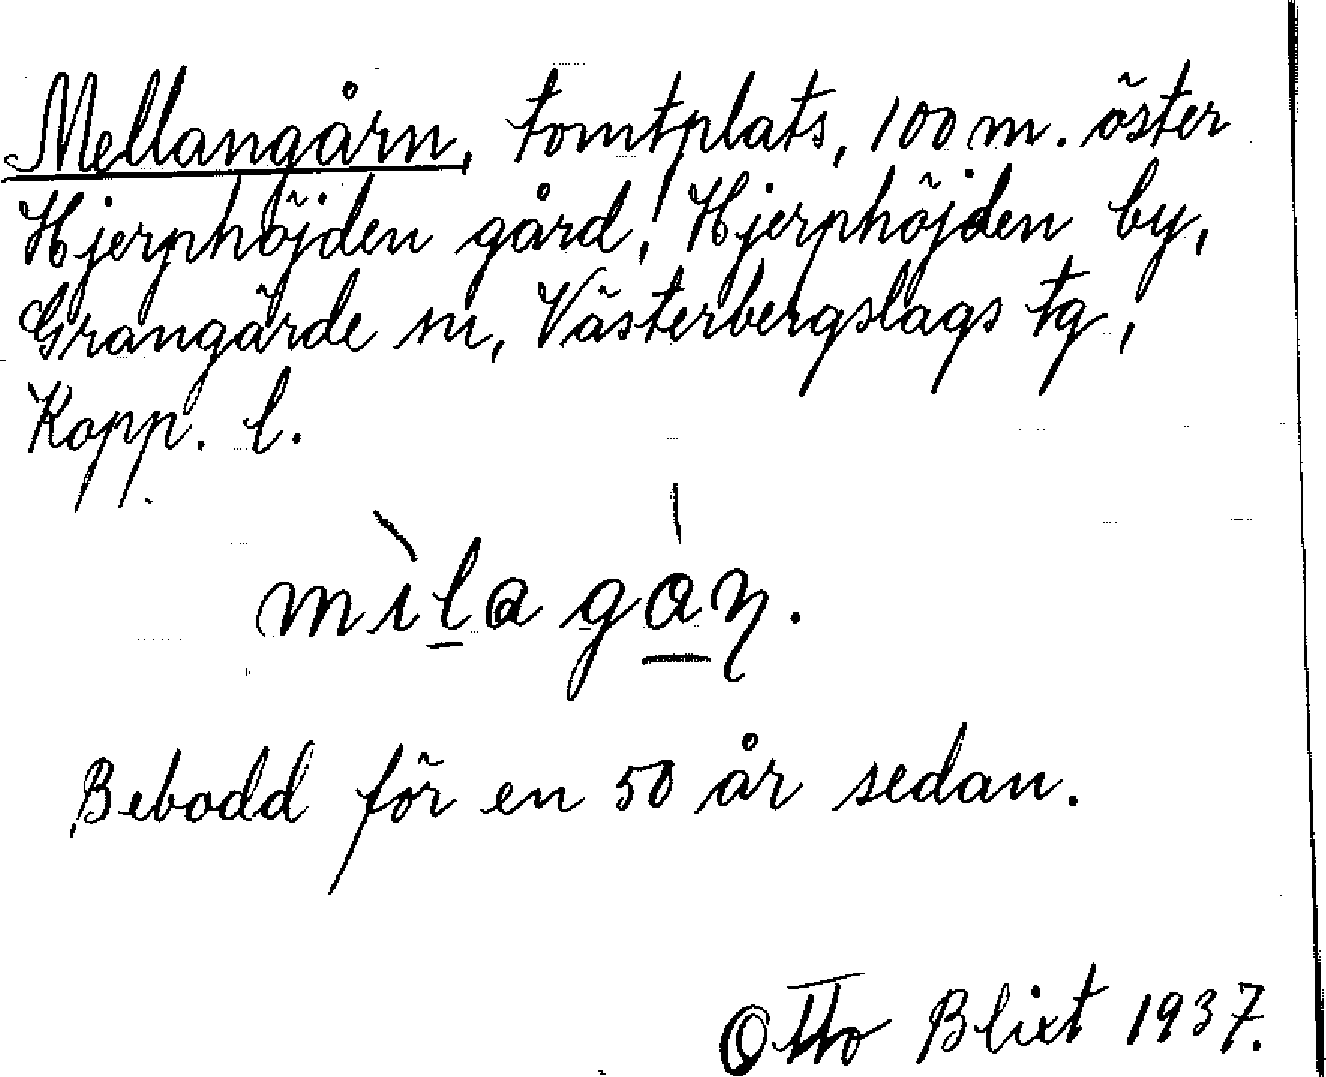 Mellangårn, tomtplats, 100 m. öster
Hjerphöjden gård, Hjerphöjden by,
Grangärde sn, Västerbergslags tg,
Kopp. l.
mìlagan.
Bebodd för en 50 år sedan.
Otto Blixt 1937.